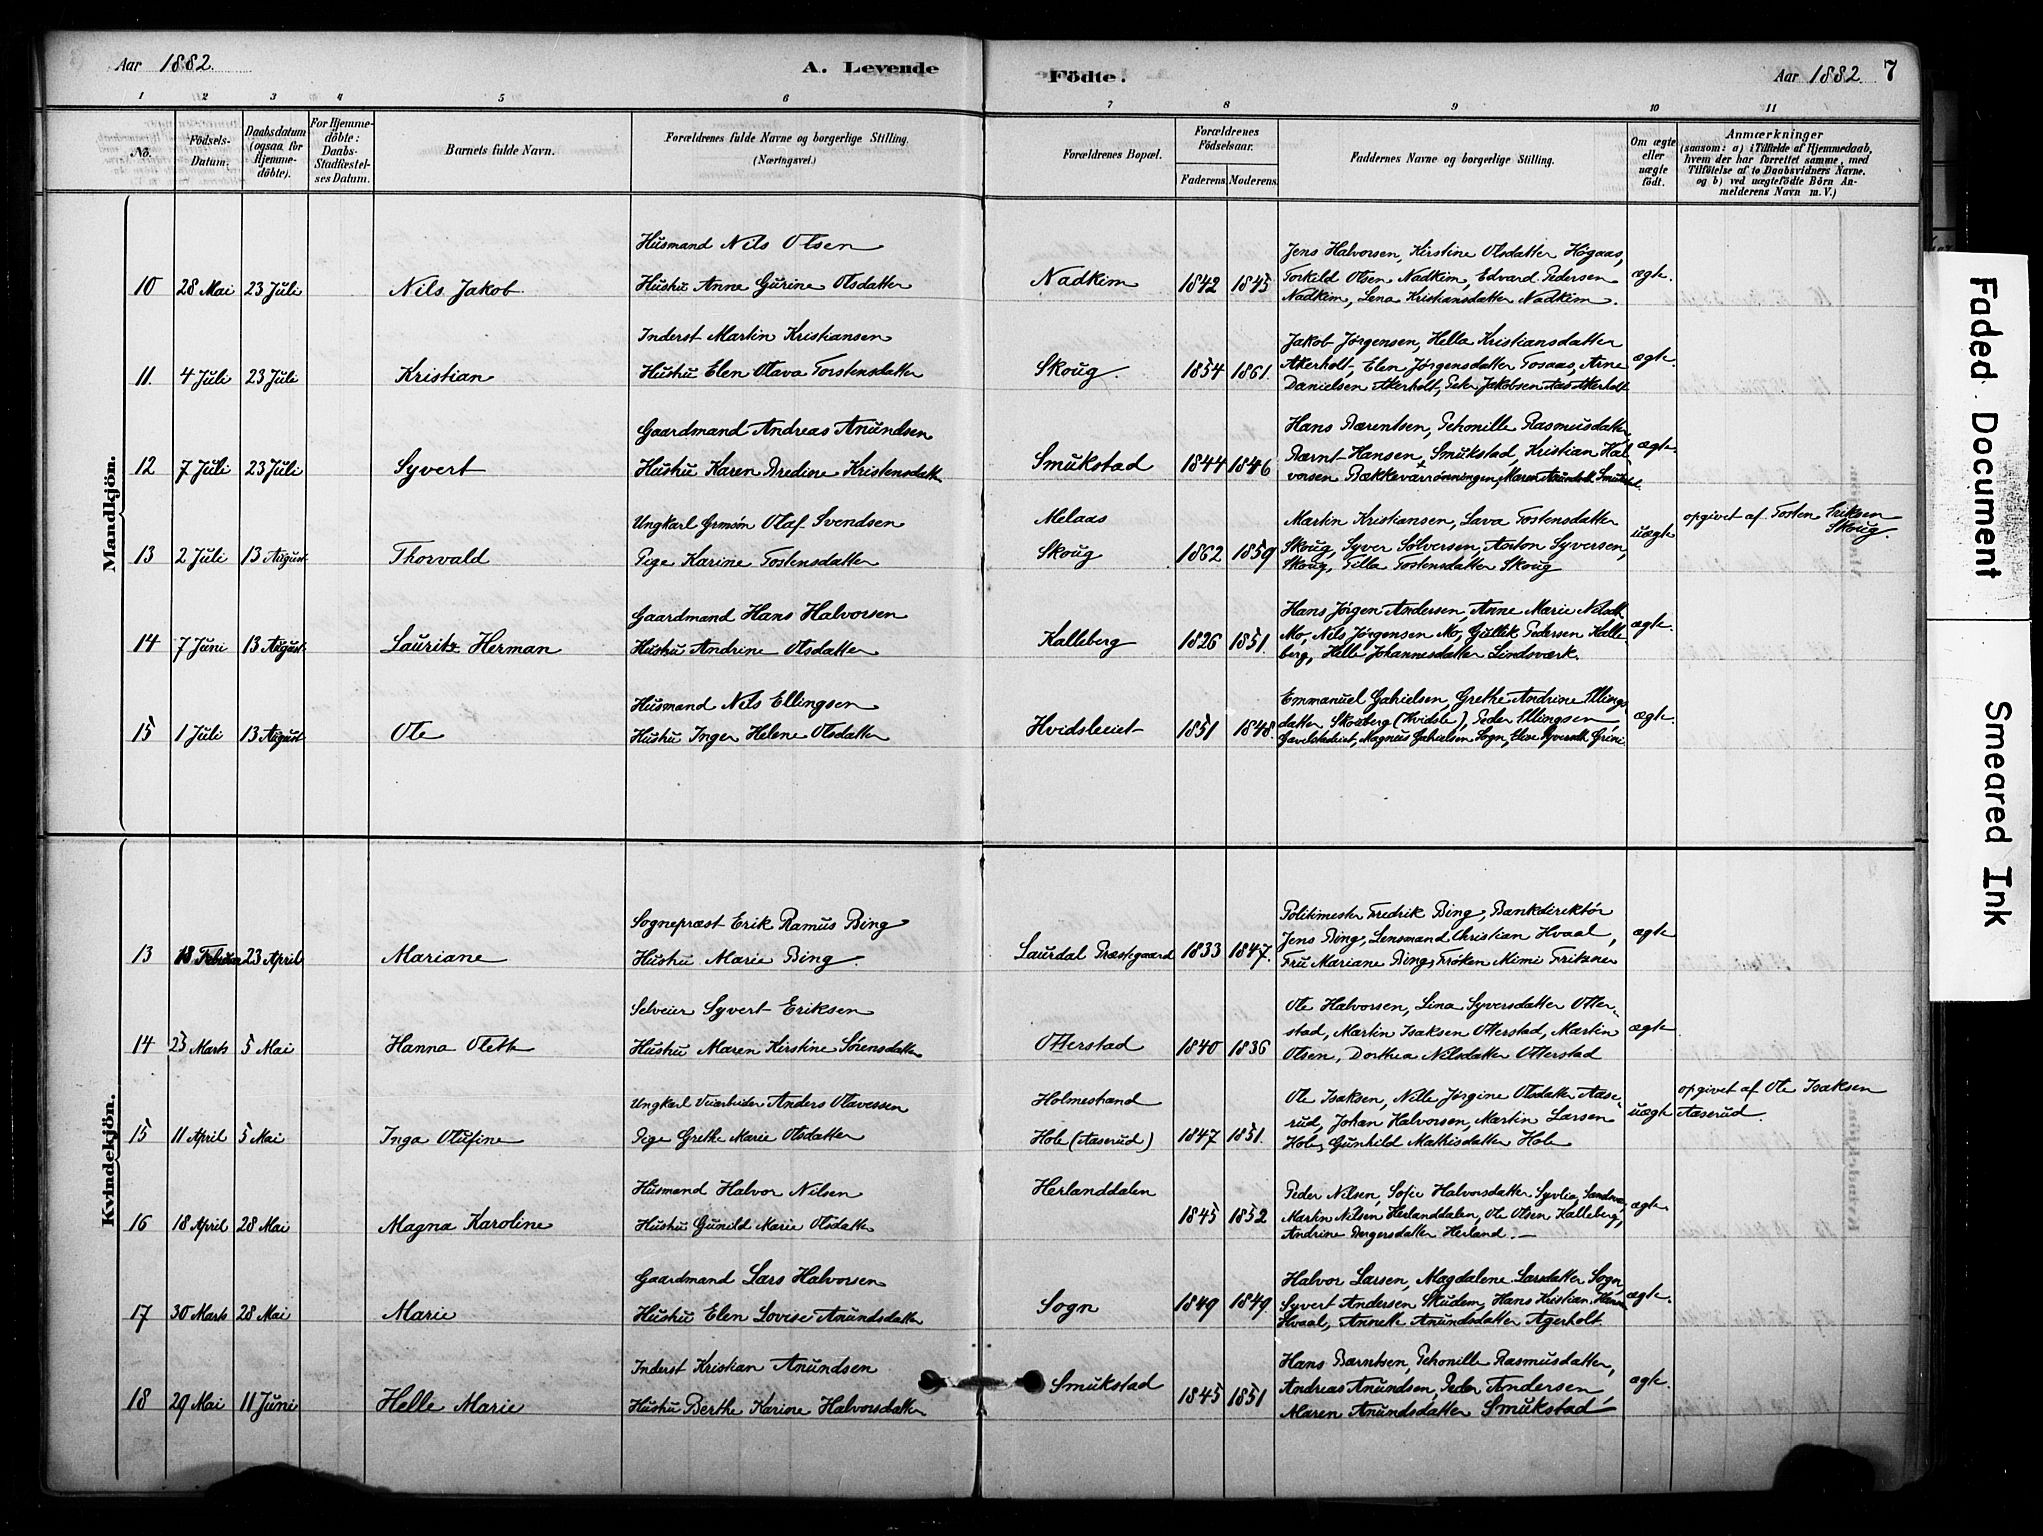 Aar 1882.
A. Levende Födte.
Aar 1882. 7
1 2 3 4 5 6 7 8 9 10 11
No.
Födsels-Datum.
Daabsdatum (ogsaa for Hjemme-döbte).
For Hjemme-döbte: Daabs-Stadfæstel-ses Datum.
Barnets fulde Navn.
Forældrenes fulde Navne og borgerlige Stilling. (Næringsvei.)
Forældrenes Bopæl.
Forældrenes Födselsaar.
Faderens. Moderens.
Faddernes Navne og borgerlige Stilling.
Om ægte eller uægte födt.
Anmærkninger
(saasom: a) i Tilfælde af Hjemmedaab,
hvem der har forrettet samme, med
Tilföielse af to Daabsvidners Navne.
og b) ved uægtefödte Börn An-
melderens Navn m. V.)
Mandkjön.
Husmand Nils Olsen
Jens Halvorsen, Kirstine Olsdatter Högaas,
10 28 Mai 23 Juli Nils Jakob Hustru Anne Gurine Olsdatter Nadkim 1842 1845 Torkild Olsen Nadkim, Edvard Pedersen ægte.
Nadkim, Lena Kristiansdatter Nadkim.
Inderst Martin Kristiansen
Jakob Jørgensen, Hella Kristiansdatter
11. 4 Juli 23 Juli Kristian Hustru Elen Olava Torstensdatter Skoug. 1854 1861. Akerholt, Elen Jørgensdatter Tosaas, Arne ægte.
Danielsen Akerholt, Peter Jakobsen Akerholt
Gaardmand Andreas Anundsen
Hans Bærentsen, Pehonille Rasmusdatter,
12 7 Juli 23 Juli Syvert Hustru Karen Bredine Kristensdatt. Smukstad 1844 1846 Bærnt Hansen, Smukstad, Kristian Hal- ægte.
vorsen Bækkeværrønningen, Maren Anundsdt. Smukstad.
Ungkarl Ormøn Olaf Svendsen Melaas
Martin Kristiansen, Lava Tostensdatter opgivet af Tosten Eriksen Skoug.
13 2 Juli 13 August Thorvald Pige Karine Tostensdatter Skoug 1862 1859 Skoug, Syver Solversen, Anton Syversen, uægte
Skoug, Tilla Tostensdatter Skoug
Gaardmand Hans Halvorsen
Hans Jörgen Andersen, Anne Marie Nilsdt.
14 7 Juni 13 August Lauritz Herman Hustru Andrine Olsdatter Kalleberg 1826 1851. Mo, Nils Jørgensen Mo, Gullik Pedersen Kalle- ægte.
berg, Helle Johannesdatter Lindsværk.
Husmand Nils Ellingsen
Emmanuel Gabielsen, Grethe Andrine Ellings-
15 1 Juli 13 August Ole Hustru Inger Helene Olsdatter Hvidsleiet 1851 1848. datter Skouberg (Hvidsle), Peder Ellingsen ægte.
Gavelstadeiet, Magnus Gabielsen Sogn, Elise Syversdt. Grini
Kvindekjön.
Sognepræst Erik Ramus Bing
Politimester Fredrik Bing, Bankdirektør
13 18 Februar 23 April Mariane Hustru Marie Bing. Laurdal Præstegaard 1833 1847. Jens Bing, Lensmand Christian Hvaal, ægte
Fru Mariane Bing, Frøken Mimi Fritzner
Selveier Syvert Eriksen
Ole Halvorsen, Lina Syversdatter Otter-
14 25 Marts 5 Mai Hanna Olette Hustru Maren Kirstine Sørensdatter Otterstad 1840 1836 stad, Martin Isaksen Otterstad, Martin ægte
Olsen, Dorthea Nilsdatter Otterstad
Ungkarl Veiarbeider Anders Olavessen Holmestrand
Ole Isaksen, Nille Jörgine Olsdatter Aase- opgivet af Ole Isaksen Aaserud.
15 11 April 5 Mai Inga Olufine Pige Grethe Marie Olsdatter Hole (Aaserud) 1847 1851. rud, Johan Halvorsen, Martin Larsen uægte
Hole, Gunhild Mathisdatter Hole
Husmand Halvor Nilsen Herlanddalen
Peder Nilsen, Sofie Halvorsdatter Syvlia,
16 18 April 28 Mai Magna Karoline Hustru Gunild Marie Olsdatter 1845 1852 Martin Nilsen Herlanddalen, Ole Olsen Kalleberg, ægte.
Andrine Bergersdatter Herland.
Gaardmand Lars Halvorsen
Halvor Larsen, Magdalene Larsdatter Sogn,
17 30 Marts 28 Mai Marie Hustru Elen Lovise Anundsdatter Sogn 1849 1849 Syvert Andersen Skudem, Hans Kristian Hansen ægte.
Hvaal, Annette Anundsdatter Agerholt.
Inderst Kristian Anundsen
Hans Barntsen, Pehonille Rasmusdatter,
18 29 Mai 11 Juni Helle Marie Hustru Berthe Karine Halvorsdatter Smukstad 1845 1851 Andreas Anundsen, Peder Andersen, ægte.
Maren Anundsdatter Smukstad
Faded Document
Smeared Ink